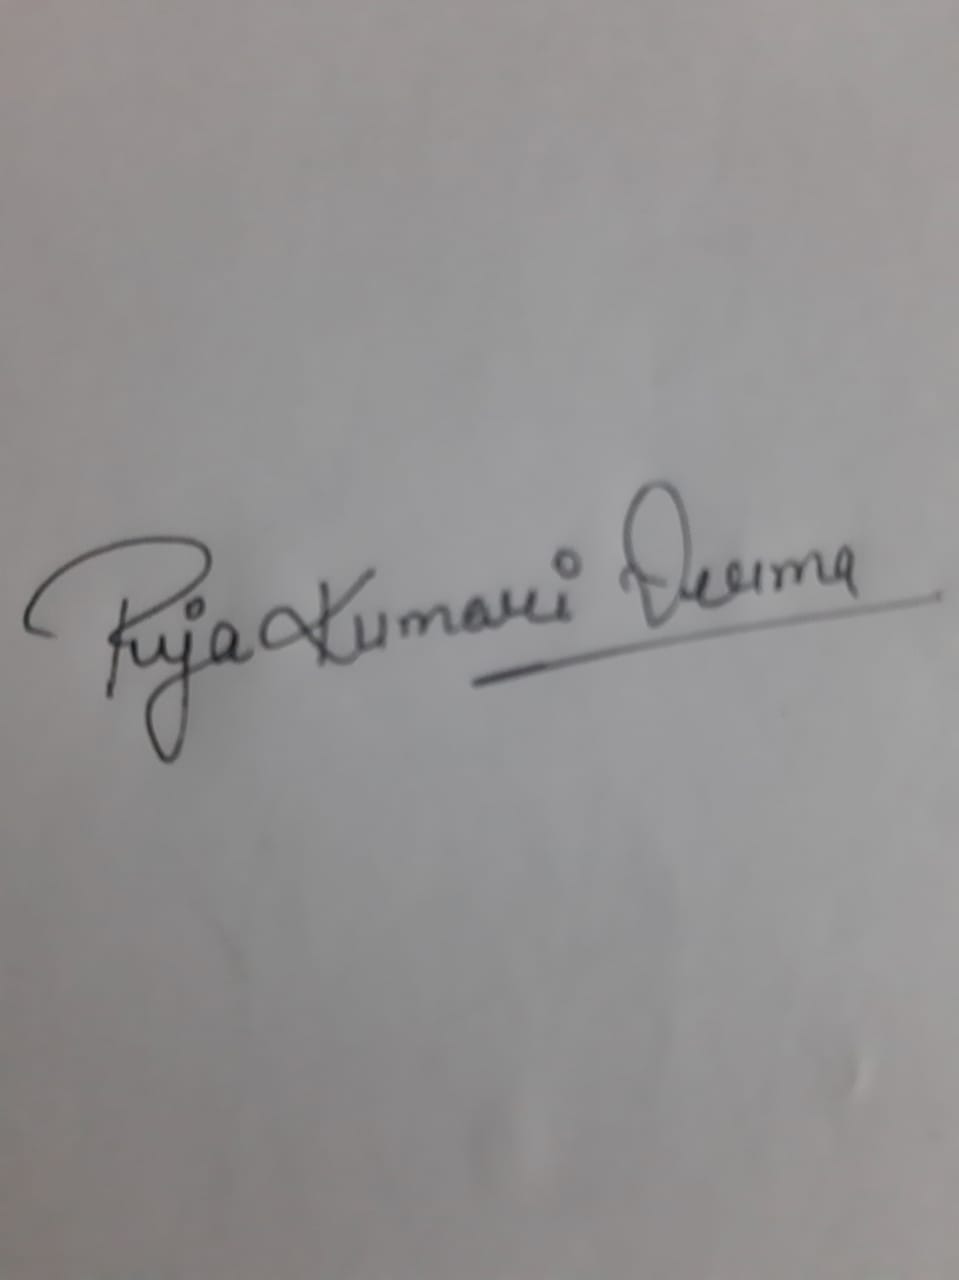 Puja Kumari Verma